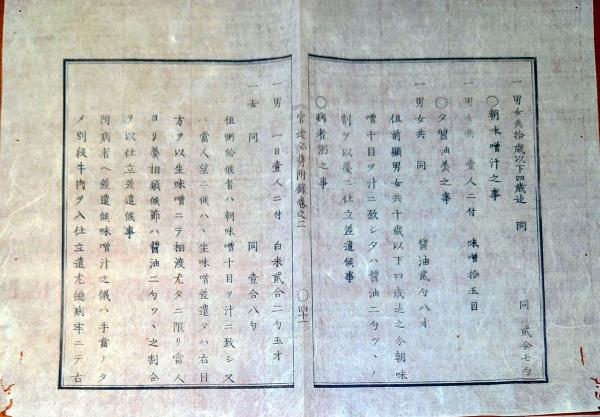 一男女共拾歳以下四歳迄　同　　同　貳合七勺
〇朝味噌汁之事
一男女共　壹人ニ付　味噌拾五目
〇夕醤油羮之事
一男女共　同　　醤油貳勺八才
但前顕男女共十歳以下四歳迄之分朝味
噌十目ヲ汁ニ致シ夕ハ醤油二勺ツヽノ
割ヲ以羮ニ仕立差遣候事
〇病者粥之事
附録巻之二　〇四十一
一男　一日壹人ニ付　白米貳合二勺五才
一女　同　　同　壹合八勺
但粥給候者ハ朝味噌十目ヲ汁ニ致シ又
ハ當人望ニ候ハヽ生味噌差遣夕ハ右目
方ヲ以生味噌ニテ相渡尤夕ニ限リ當人
ヨリ羮相願候節ハ醤油二勺ツヽ之割合
ヲ以仕立差遣候事
附病者ヘ差遣候味噌汁之儀ハ手當ノタ
メ別段牛肉ヲ入仕立遣尤病牢ニテ右